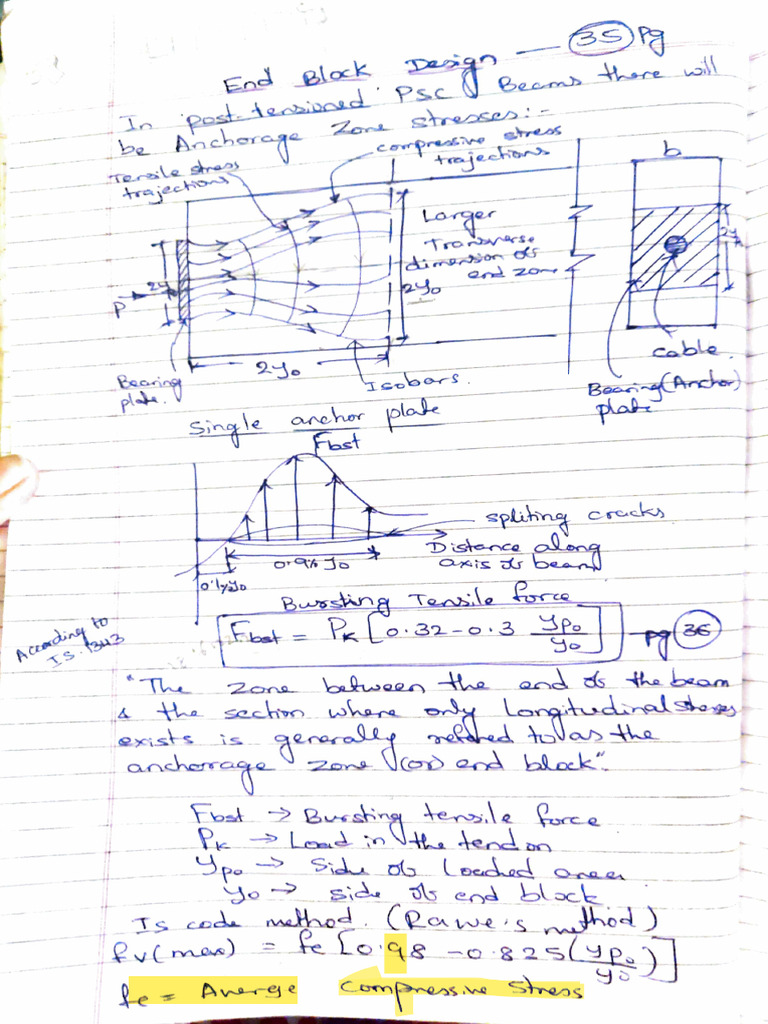 End Block Design — 35 Pg
In post-tensioned PSC Beams there will
be Anchorage Zone stresses:-
Tensile stress
trajections
compressive stress
trajections
Larger
Transverse
dimension of
end zone
2y₀
P
2y₀
Bearing
plate.
Isobars.
b
cable.
Bearing (Anchor)
plate
Single anchor plate
Fbst
spliting cracks
Distance along
axis of beam
0.9% y₀
0.1y₀
Bursting Tensile force
According to
IS.1343
Fbst = Pk [0.32-0.3 yp₀/y₀] pg 36
"The zone between the end of the beam
& the section where only Longitudinal stresses
exists is generally refered to as the
anchorrage zone (or) end block".
Fbst → Bursting tensile force
Pk → Load in the tendon
yp₀ → Side of Loaded area
y₀ → side of end block
Is code method. (Rawe's method)
fv(max) = fe [0.98 -0.825(yp₀/y₀)]
fe = Averege compressive stress